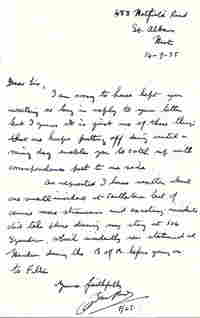 Hatfield Road
St. Albans
Herts
Dear Sir,
I am sorry to have kept you
waiting so long in reply to your letter
but I guess it is just one of those things
that one keeps putting off doing until a
rainy day enables you to catch up with
correspondence put to one side.
As requested I have written about
one small incident at
some more strenuous and exciting incidents
did take place during my stay at 106
Squadron which incidentally was stationed at
during the B of B before going on
to
Yours faithfully